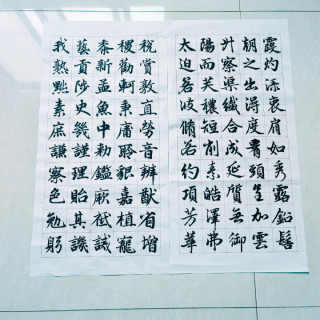 我藝黍稷稅
熟貢新勸賞
黜陟孟軻敦
素史魚秉直
庶幾中庸勞
謙謹勅聆音
察理鑑貌辨
色貽厥嘉猷
勉其祗植省
躬譏誡寵增
太陽升朝霞
迫而察之灼
若芙蕖出淥
波穠纖得衷
脩短合度肩
若削成腰如
約素延頸秀
項皓質呈露
芳澤無加鉛
華弗御雲髻